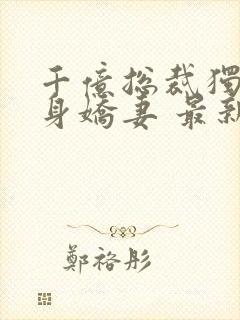 千億總裁獨
身嬌妻 最新
鄭裕彤